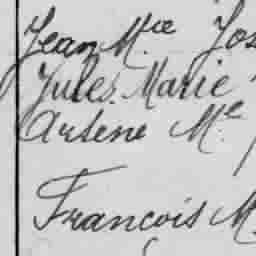 Jean M.ie Jos
Jules Marie
Arsene M.e
François M.